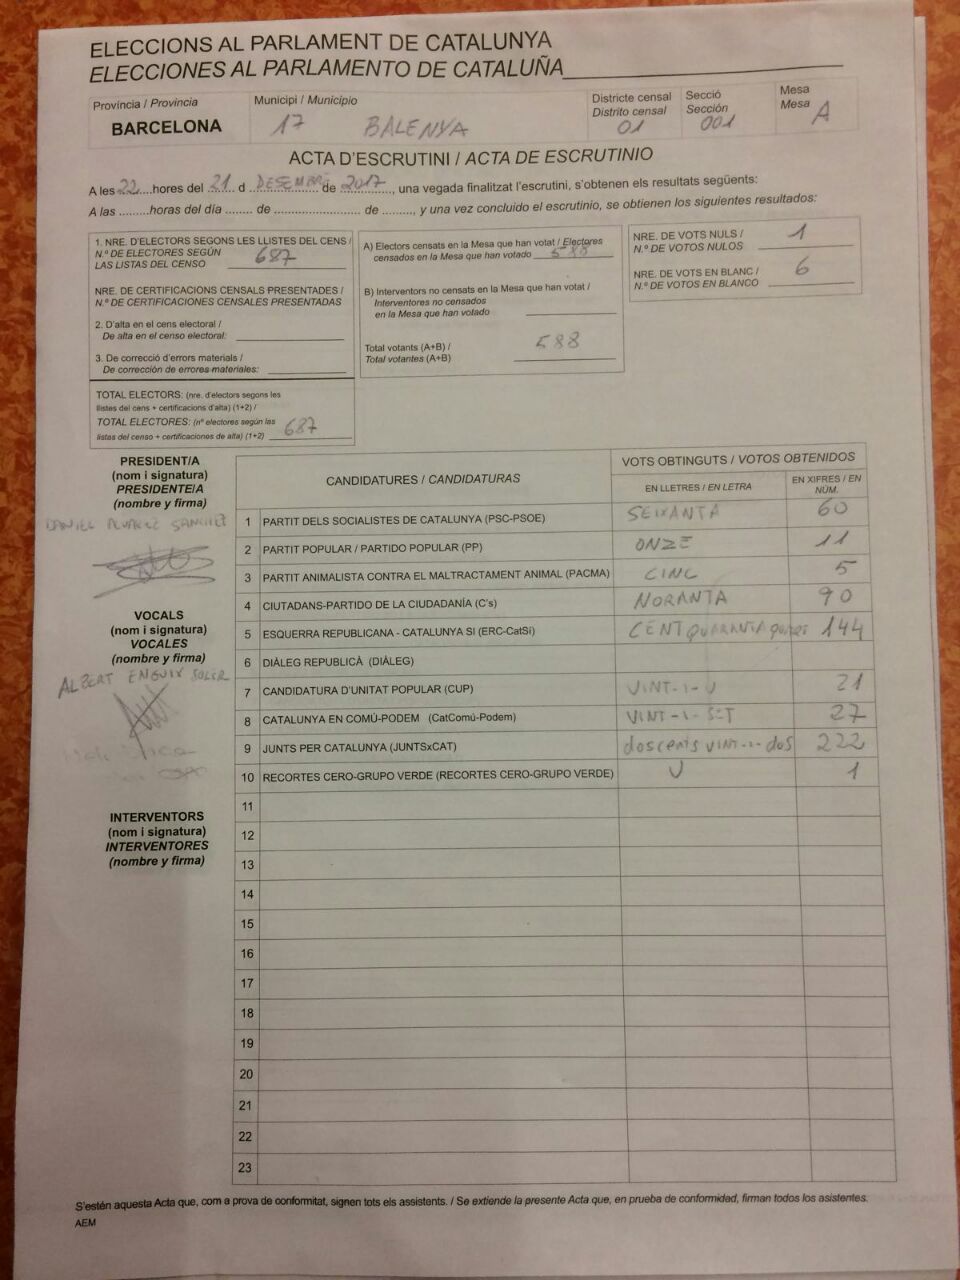 ELECCIONS AL PARLAMENT DE CATALUNYA
ELECCIONES AL PARLAMENTO DE CATALUÑA
Província / Provincia
BARCELONA
Municipi / Municipio
17 BALENYA
Districte censal
Distrito censal
01
Secció
Sección
001
Mesa
Mesa
A
ACTA D'ESCRUTINI / ACTA DE ESCRUTINIO
A les 22 hores del 21 d DESEMBRE de 2017, una vegada finalitzat l'escrutini, s'obtenen els resultats següents:
A las ......... horas del día ........ de .......................... de ........., y una vez concluido el escrutinio, se obtienen los siguientes resultados:
1. NRE. D'ELECTORS SEGONS LES LLISTES DEL CENS /
N.º DE ELECTORES SEGÚN
LAS LISTAS DEL CENSO 687
NRE. DE CERTIFICACIONS CENSALS PRESENTADES /
N.º DE CERTIFICACIONES CENSALES PRESENTADAS
2. D'alta en el cens electoral /
De alta en el censo electoral:
3. De correcció d'errors materials /
De corrección de errores materiales:
TOTAL ELECTORS: (nre. d'electors segons les
llistes del cens + certificacions d'alta) (1+2) /
TOTAL ELECTORES: (nº electores según las
listas del censo + certificaciones de alta) (1+2) 687
A) Electors censats en la Mesa que han votat / Electores
censados en la Mesa que han votado 588
B) Interventors no censats en la Mesa que han votat /
Interventores no censados
en la Mesa que han votado
Total votants (A+B) /
Total votantes (A+B) 588
NRE. DE VOTS NULS /
N.º DE VOTOS NULOS 1
NRE. DE VOTS EN BLANC /
N.º DE VOTOS EN BLANCO 6
PRESIDENT/A
(nom i signatura)
PRESIDENTE/A
(nombre y firma)
DANIEL ALVAREZ SANCHEZ
VOCALS
(nom i signatura)
VOCALES
(nombre y firma)
ALBERT ENGUIX SOLER
INTERVENTORS
(nom i signatura)
INTERVENTORES
(nombre y firma)
CANDIDATURES / CANDIDATURAS
VOTS OBTINGUTS / VOTOS OBTENIDOS
EN LLETRES / EN LETRA
EN XIFRES / EN NÚM.
1 PARTIT DELS SOCIALISTES DE CATALUNYA (PSC-PSOE) SEIXANTA 60
2 PARTIT POPULAR / PARTIDO POPULAR (PP) ONZE 11
3 PARTIT ANIMALISTA CONTRA EL MALTRACTAMENT ANIMAL (PACMA) CINC 5
4 CIUTADANS-PARTIDO DE LA CIUDADANÍA (C's) NORANTA 90
5 ESQUERRA REPUBLICANA - CATALUNYA SI (ERC-CatSí) CENT QUARANTA quatre 144
6 DIÀLEG REPUBLICÀ (DIÀLEG)
7 CANDIDATURA D'UNITAT POPULAR (CUP) VINT-I-U 21
8 CATALUNYA EN COMÚ-PODEM (CatComú-Podem) VINT-I-SET 27
9 JUNTS PER CATALUNYA (JUNTSxCAT) doscents VINT-i-dos 222
10 RECORTES CERO-GRUPO VERDE (RECORTES CERO-GRUPO VERDE) U 1
11
12
13
14
15
16
17
18
19
20
21
22
23
S'estén aquesta Acta que, com a prova de conformitat, signen tots els assistents. / Se extiende la presente Acta que, en prueba de conformidad, firman todos los asistentes.
AEM